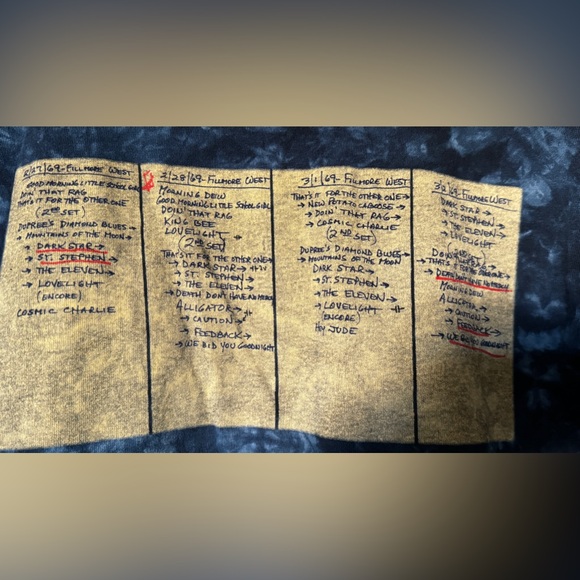 2/27/69-FILLMORE WEST
GOOD MORNING LITTLE SCHOOL GIRL
DOIN THAT RAG
THAT'S IT FOR THE OTHER ONE
(2ND SET)
DUPREE'S DIAMOND BLUES→
→ MOUNTAINS OF THE MOON→
→ DARK STAR→
→ ST. STEPHEN→
→ THE ELEVEN→
→ LOVELIGHT
(ENCORE)
COSMIC CHARLIE
2/28/69-FILLMORE WEST
MORNING DEW
GOOD MORNING LITTLE SCHOOL GIRL
DOIN' THAT RAG
KING BEE
LOVELIGHT
(2ND SET)
THAT'S IT FOR THE OTHER ONE→
→ DARK STAR→
→ ST. STEPHEN→
→ THE ELEVEN→
→ DEATH DON'T HAVE NO MERCY
ALLIGATOR→
→ CAUTION→
→ FEEDBACK→
→ WE BID YOU GOODNIGHT
3/1/69-FILLMORE WEST
THAT'S IT FOR THE OTHER ONE→
→ NEW POTATO CABOOSE→
→ DOIN THAT RAG→
→ COSMIC CHARLIE
(2ND SET)
DUPREE'S DIAMOND BLUES→
→ MOUNTAINS OF THE MOON
DARK STAR→
→ ST. STEPHEN→
→ THE ELEVEN→
→ LOVELIGHT
(ENCORE)
HEY JUDE
3/2/69-FILLMORE WEST
DARK STAR→
→ ST. STEPHEN→
→ THE ELEVEN→
→ LOVELIGHT
→ THAT'S IT FOR THE OTHER ONE→
→ DEATH DON'T HAVE NO MERCY
MORNING DEW
ALLIGATOR→
→ CAUTION→
→ FEEDBACK→
→ WE BID YOU GOODNIGHT